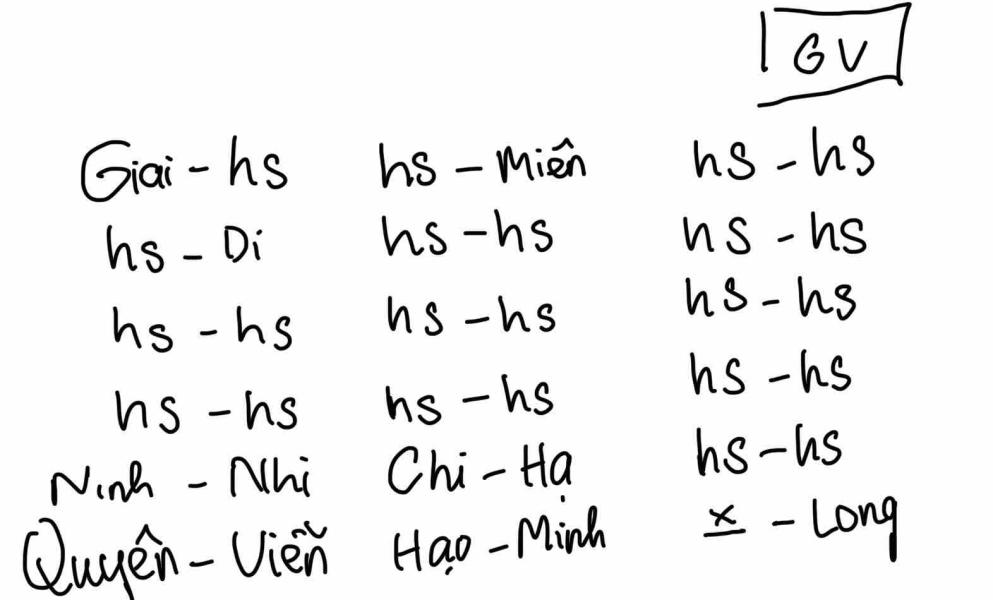 GV
Giai - hs hs - Miên hs - hs
hs - Di hs - hs hs - hs
hs - hs hs - hs hs - hs
hs - hs hs - hs hs - hs
Ninh - Nhi Chi - Hạ hs - hs
Quyên - Viễn Hạo - Minh x - Long